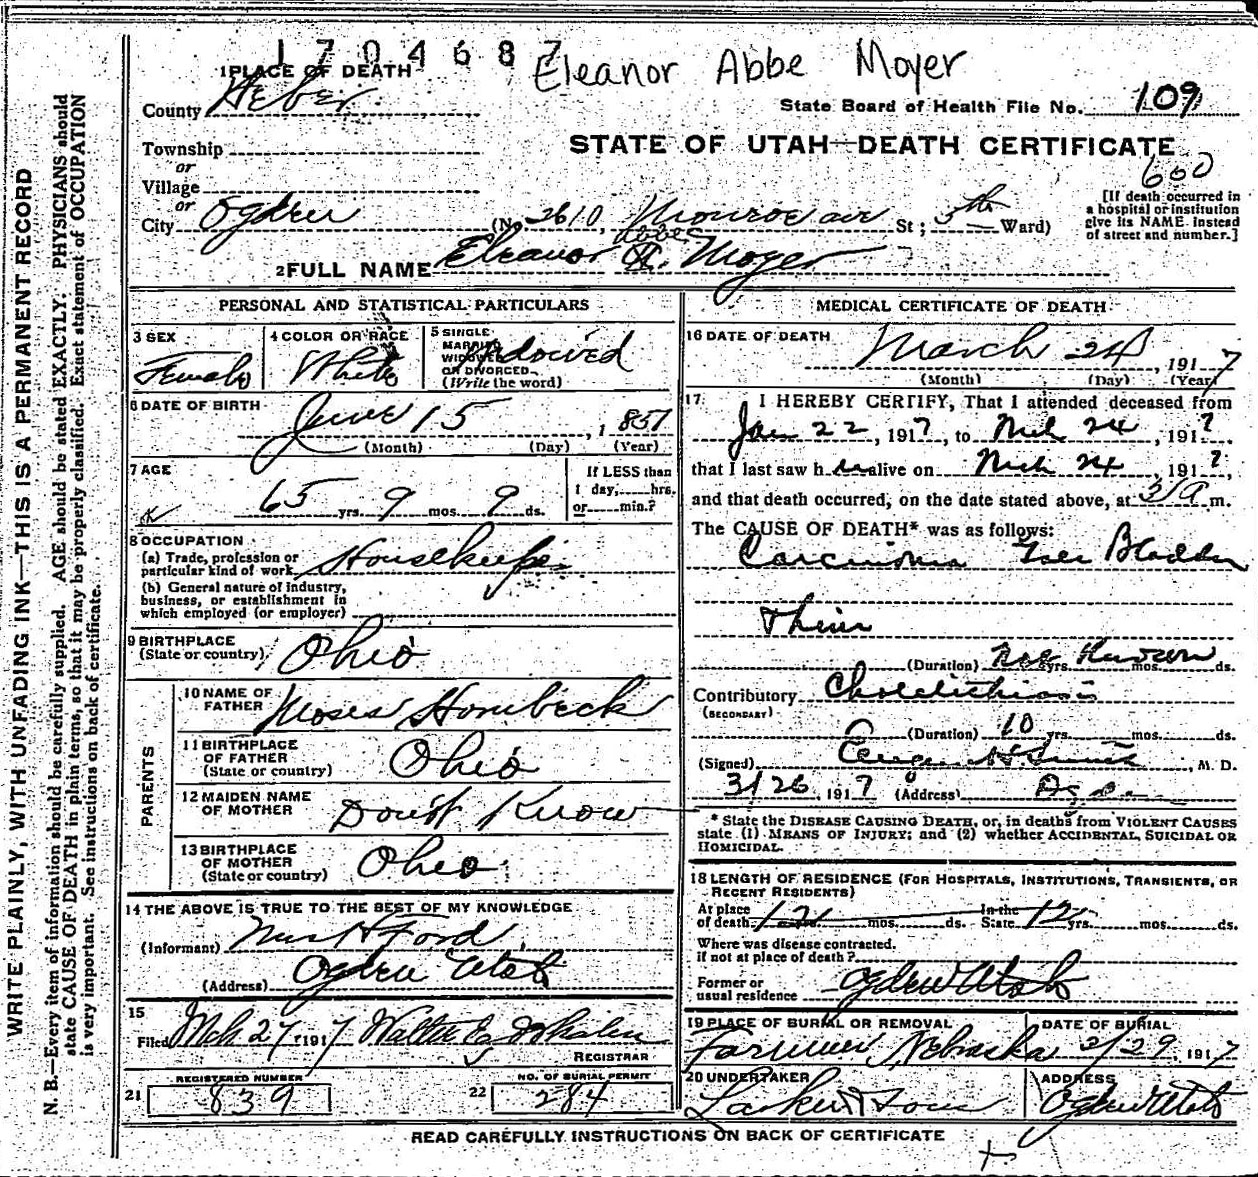 1704687
Eleanor Abbe Moyer
1 PLACE OF DEATH
County Weber
State Board of Health File No. 109
Township
STATE OF UTAH—DEATH CERTIFICATE
or
Village
600
or
City Ogden (No. 2610, Monroe ave St; 5th Ward)
[If death occurred in a hospital or institution give its NAME instead of street and number.]
Abbe
2 FULL NAME Eleanor A. Moyer
PERSONAL AND STATISTICAL PARTICULARS
3 SEX
Female
4 COLOR OR RACE
White
5 SINGLE MARRIED WIDOWED OR DIVORCED (Write the word)
Widowed
6 DATE OF BIRTH
June 15, 1851
(Month) (Day) (Year)
7 AGE
65 yrs. 9 mos. 9 ds.
If LESS than 1 day,......hrs. or......min.?
8 OCCUPATION
(a) Trade, profession or particular kind of work Housekeeper
(b) General nature of industry, business, or establishment in which employed (or employer)
9 BIRTHPLACE (State or country) Ohio
PARENTS
10 NAME OF FATHER Moses Hornbeck
11 BIRTHPLACE OF FATHER (State or country) Ohio
12 MAIDEN NAME OF MOTHER Don't Know
13 BIRTHPLACE OF MOTHER (State or country) Ohio
14 THE ABOVE IS TRUE TO THE BEST OF MY KNOWLEDGE
(Informant) H Ford
(Address) Ogden Utah
15
Filed Mch 27, 1917 Walter E Whalen
REGISTRAR
REGISTERED NUMBER
21 839
NO. OF BURIAL PERMIT
22 284
MEDICAL CERTIFICATE OF DEATH
16 DATE OF DEATH
March 24, 1917
(Month) (Day) (Year)
17 I HEREBY CERTIFY, That I attended deceased from
Jan 22, 1917, to Mch 24, 1917,
that I last saw her alive on Mch 24, 1917,
and that death occurred, on the date stated above, at 3 A m.
The CAUSE OF DEATH* was as follows:
Carcinoma Gall Bladder
(Duration) yrs. mos. ds.
Contributory Cholelithiasis
(SECONDARY)
(Duration) 10 yrs. mos. ds.
(Signed) H Smith, M. D.
3/26, 1917 (Address) Ogden
* State the DISEASE CAUSING DEATH, or, in deaths from VIOLENT CAUSES state (1) MEANS OF INJURY; and (2) whether ACCIDENTAL, SUICIDAL OR HOMICIDAL.
18 LENGTH OF RESIDENCE (FOR HOSPITALS, INSTITUTIONS, TRANSIENTS, OR RECENT RESIDENTS)
At place of death 12 mos. ds. In the State 12 yrs. mos. ds.
Where was disease contracted. if not at place of death?
Former or usual residence Ogden Utah
19 PLACE OF BURIAL OR REMOVAL
Nebraska
DATE OF BURIAL
3/29 1917
20 UNDERTAKER
Larkin & Sons
ADDRESS
Ogden Utah
READ CAREFULLY INSTRUCTIONS ON BACK OF CERTIFICATE
WRITE PLAINLY, WITH UNFADING INK—THIS IS A PERMANENT RECORD
N. B.—Every item of information should be carefully supplied. AGE should be stated EXACTLY. PHYSICIANS should
state CAUSE OF DEATH in plain terms, so that it may be properly classified. Exact statement of OCCUPATION
is very important. See instructions on back of certificate.